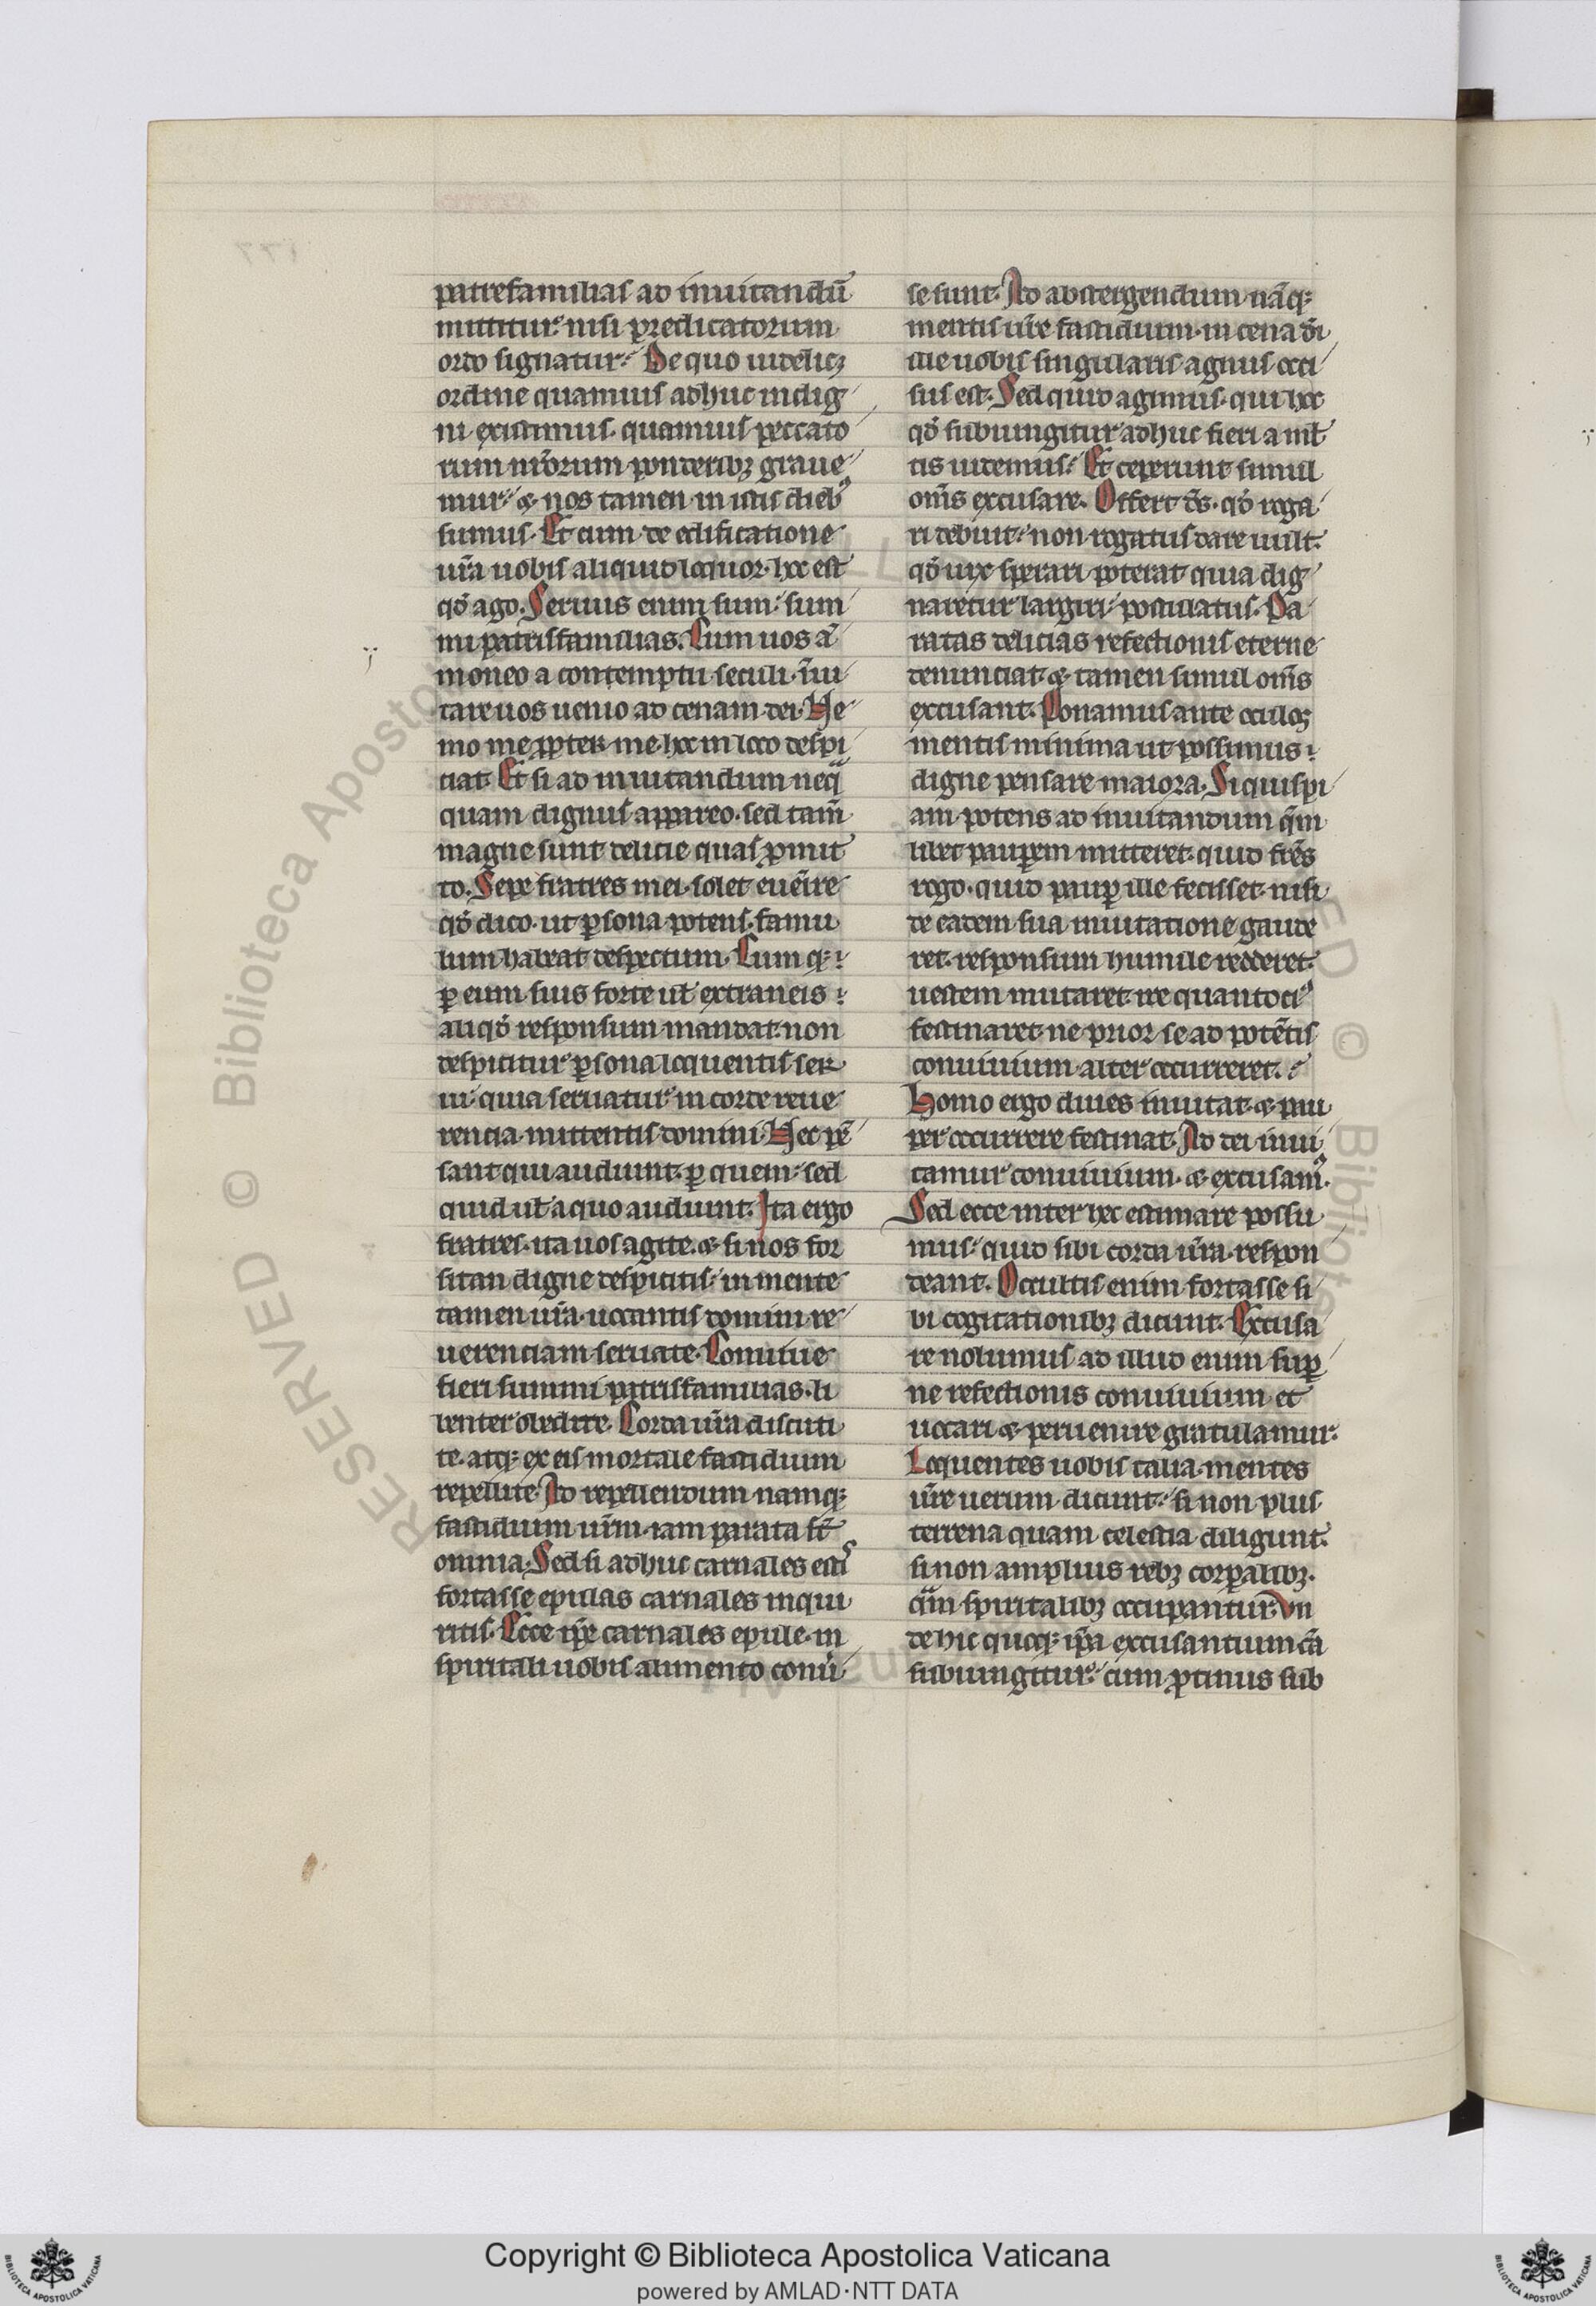 patrefamilias ad inuitandū
mittitur nisi predicatorum
ordo signatur. De quo uidelicꝫ
ordine quamuis adhuc indig
ni existimus. quamuis peccato
rum nr̄orum ponderibꝫ graue
mur. ⁊ nos tamen in istis dieb᷒
sumus. Et cum de edificatione
ur̄a uobis aliquid loquor. hoc est
qd̄ ago. Seruus enim sum. sum
mi patrisfamilias. Cum uos a᷒
moneo a contemptu seculi. īui
tare uos uenio ad cenam dei. Ne
mo me ꝓpter me hoc in loco despi
ciat. Et si ad inuitandum neq̄
quam dignus appareo. sed tam̄
magne sunt delicie quas ꝓmit
to. Sepe fratres mei. solet euēire
qd̄ dico. ut ꝑsona potens. famu
lum habeat despectum. Cumqꝫ
ꝑ eum suis forte uł extraneis
aliqd̄ responsum mandat. non
despicitur ꝑsona loquentis ser
ui. quia seruatur in corde reue
rencia mittentis domini. Nec pē
sant qui audiunt. ꝑ quem. sed
quid uł a quo audiunt. Ita ergo
fratres. ita uos agite. ⁊ si nos for
sitan digne despicitis. in mente
tamen ur̄a. uocantis domini re
uerenciam seruate. Conuiue
fieri summi patrisfamilias. li
benter obedite. Corda ur̄a discuti
te. atqꝫ ex eis mortale fastidium
repellite. Ad repellendum namqꝫ
fastidium ur̄m. iam parata st̄
omnia. Sed si adhuc carnales esti᷒
fortasse epulas carnales inqui
ritis. Ecce ip̄e carnales epule. in
spiritali uobis alimento conū
se sunt. Ad abstergendum nāqꝫ
mentis ur̄e fastidium. in cena dn̄i
ille uobis singularis agnus occi
sus est. Sed quid agimus. qui hoc
qd̄ subiungitur adhuc fieri a mł
tis uidemus. Et ceperunt simul
om̄s excusare. Offert ds̄. qd̄ roga
ri debuit. non rogatus dare uult.
qd̄ uix sperari poterat quia dig
naretur largiri. postulatus. Pa
ratas delicias refectionis eterne
denunciat. ⁊ tamen simul om̄s
excusant. Ponamus ante oculos
mentis minima ut possimus
digne pensare maiora. Si quispi
am potens ad inuitandum q̄m
libet pauꝑem mitteret. quid fr̄es
rogo. quid pauꝑ ille fecisset. nisi
de eadem sua inuitatione gaude
ret. responsum humile redderet.
uestem mutaret. ire quantoci᷒
festinaret. ne prior se ad potētis
conuiuium alter occurreret.
Homo ergo diues inuitat. ⁊ pau
per occurrere festinat. Ad dei inui
tamur conuiuium. ⁊ excusam᷒.
Sed ecce inter hec estimare possu
mus. quid sibi corda ur̄a. respon
deant. Occultis enim fortasse si
bi cogitationibꝫ dicunt. Excusa
re nolumus ad illud enim suꝑ
ne refectionis conuiuium et
uocari ⁊ peruenire gratulamur.
Loquentes uobis talia mentes
ur̄e uerum dicunt. si non plus
terrena quam celestia diligunt.
si non amplius rebꝫ corꝑalibꝫ.
q̄m spiritalibꝫ occupantur. Vn
de hic quoqꝫ ip̄a excusantium cā
subiungitur. cum ꝓtinus sub
Copyright © Biblioteca Apostolica Vaticana
powered by AMLAD·NTT DATA